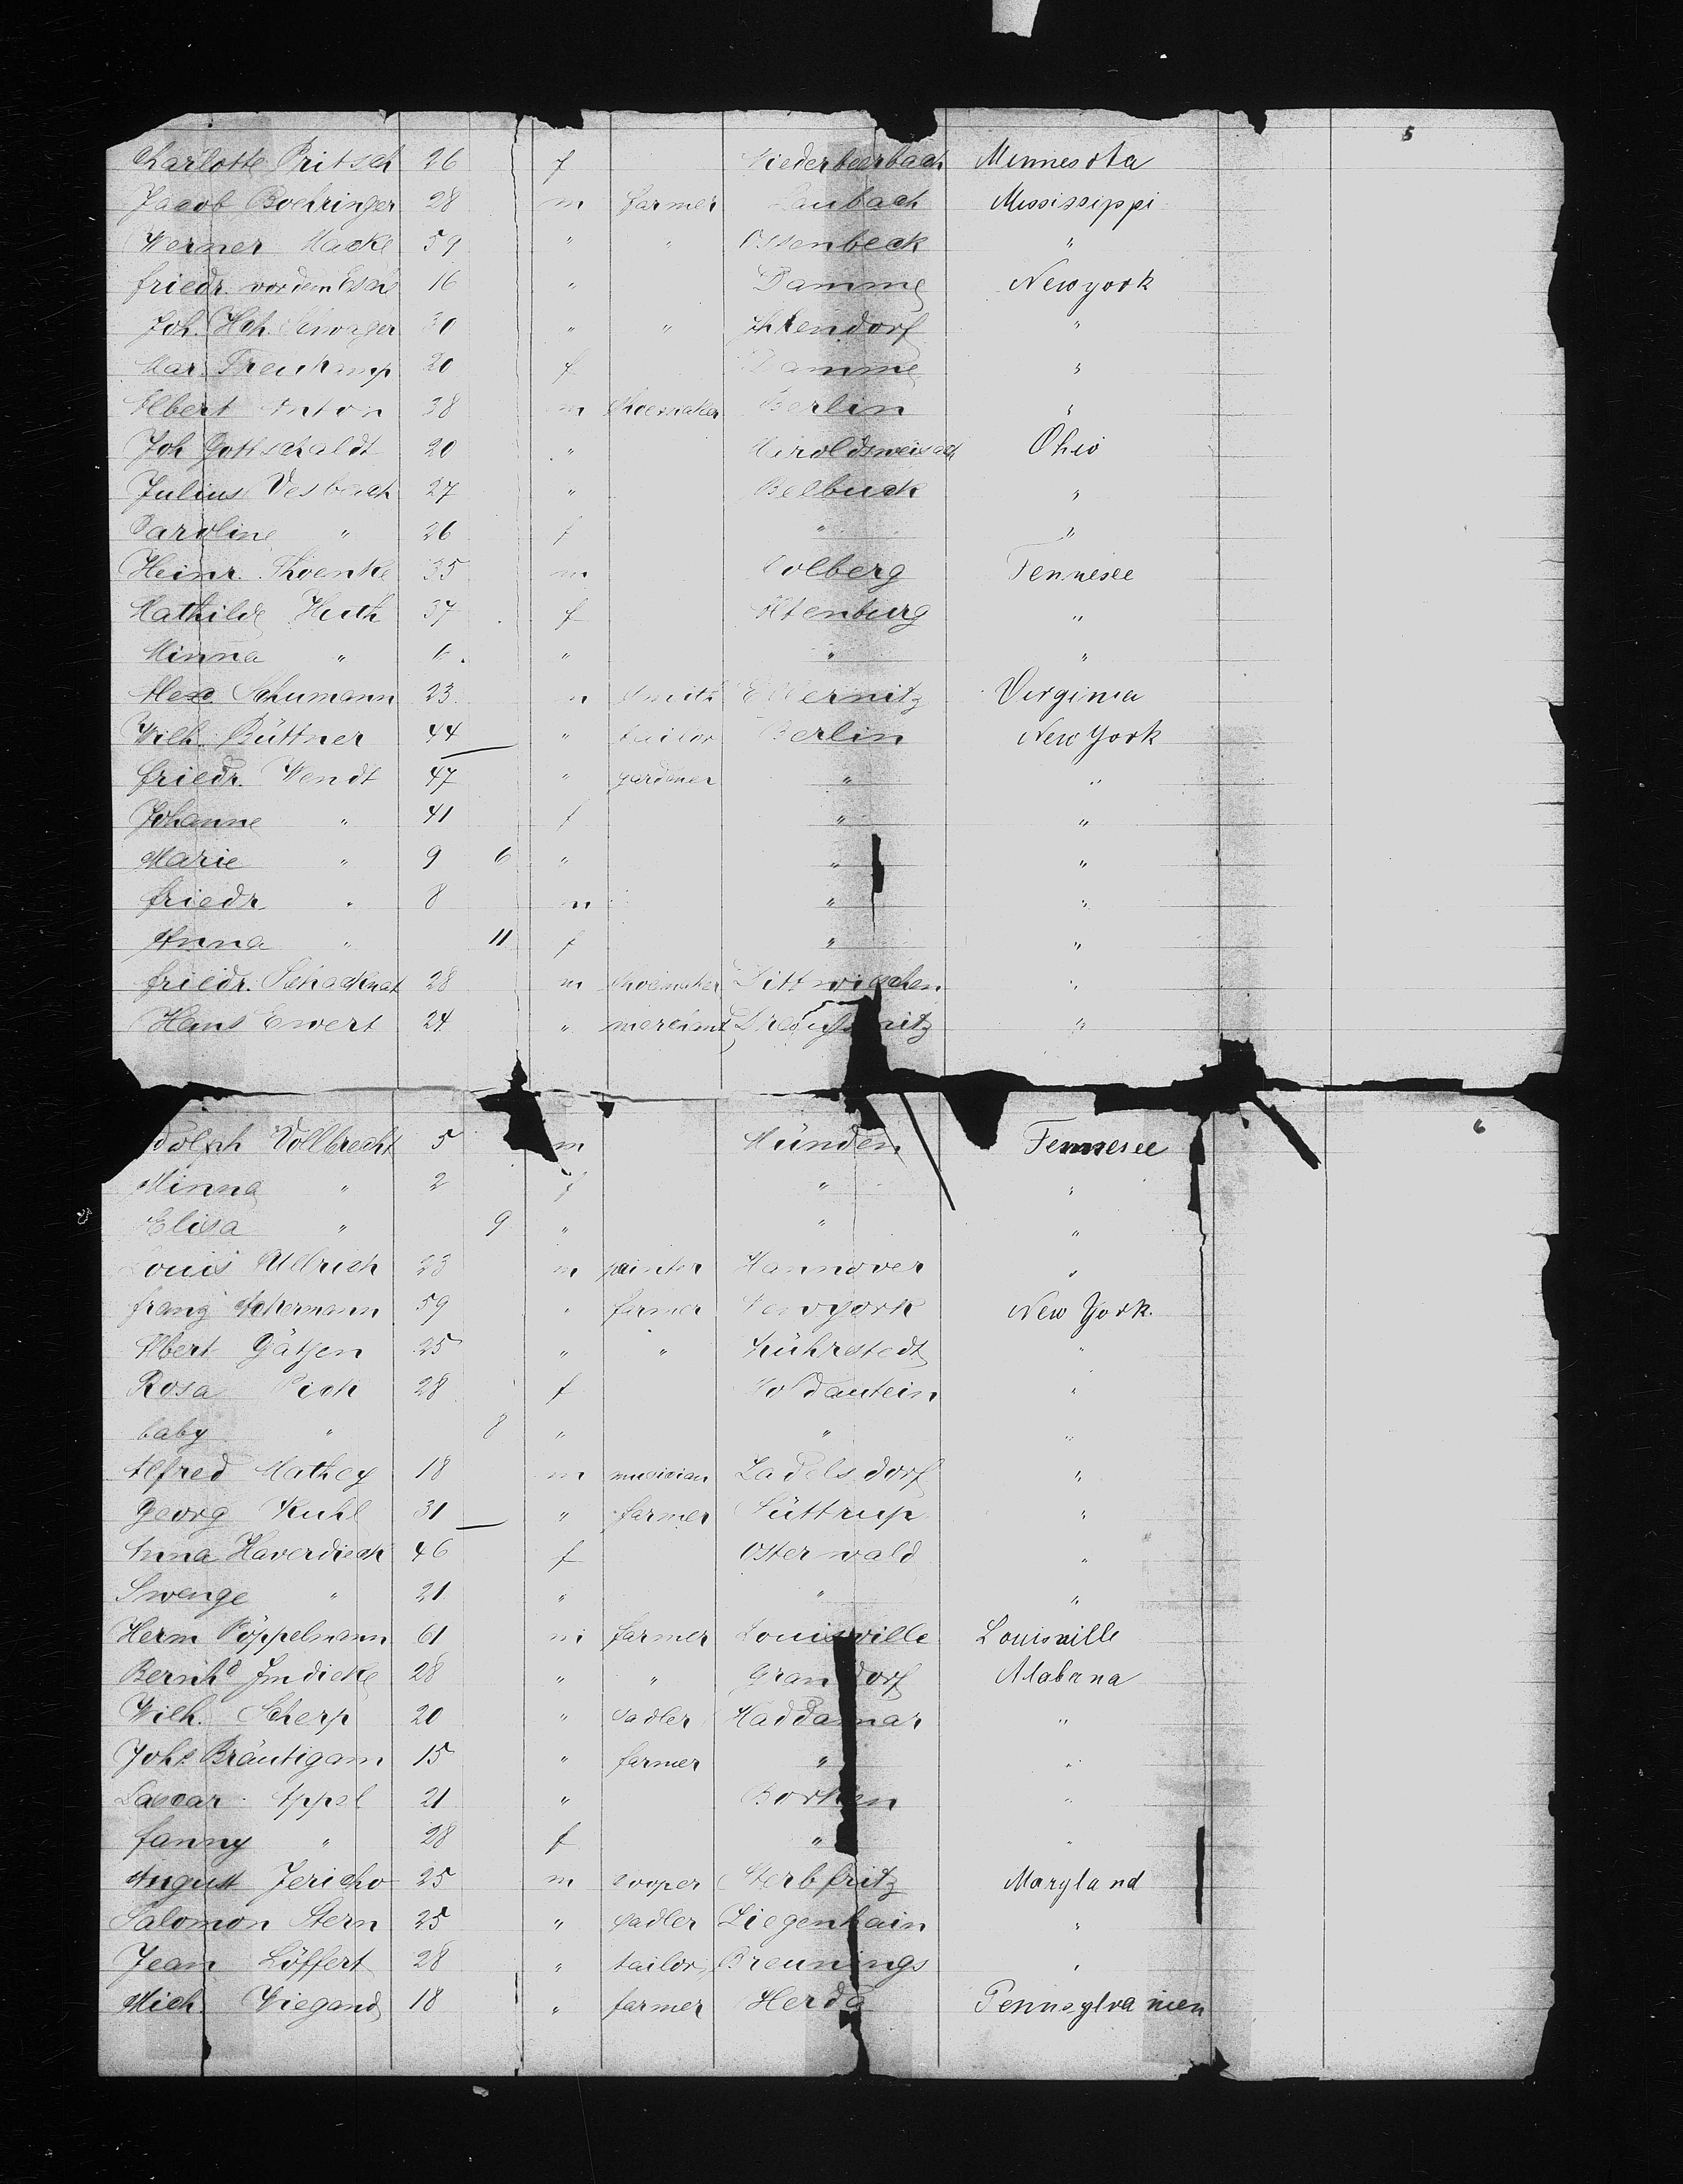 5
Charlotte Pritsch 26 f Niederbeerbach Minnesota
Jacob Boehringer 28 m farmer Laubach Mississippi
Werner Macke 59 " " Ostenbeck "
friedr. vordem Esch 16 " Damme Newyork
Joh. Hch. 30 " " "
Mar. 20 f Damme "
Albert Anton 38 m shoemaker Berlin "
Joh Gottschaldt 20 " Maroldsweisach Ohio
Julius Vesbach 27 " Belbuck "
Caroline " 26 f " "
Heinr. 35 m Colberg Tennesee
Mathilde Huth 37 f Altenburg "
Minna " " " "
Alexd. Schumann 23 m smith Virginia
Wilh. Büttner 44 " tailor Berlin New York
friedr. Wendt 47 " gardener " "
Johanne " 41 f " "
Marie " 9 6 " " "
friedr. " 8 m " "
Anna " 11 f " "
friedr. Schacknat 28 m shoemaker "
Hans Ewert 24 " "
6
Vollbrecht 5 m Münden Tennesee
Minna " 2 f " "
Elisa " 9 " " "
Louis Ullrich 23 m painter Hannover "
franz Ackermann 59 " farmer Newyork New York.
Albert Gätjen 25 " " Kührstedt "
Rosa Pick 28 f Moldautein "
baby " 8 " " "
Alfred Mathey 18 m musician Zadelsdorf "
Georg Kuhl 31 " farmer Süttrup "
Anna Haverdieck 46 f Osterwald "
Swenge " 21 " " "
Herm Pöppelmann 61 m farmer Louisville Louisville
Bernhd Imdieke 28 " " Alabana
Wilh. Scherp 20 " sadler Haddamar "
Johs Bräutigam 15 " farmer " "
Appel 21 " Borken "
fanny " 28 f " "
August Jericho 25 m cooper Sterbfritz Maryland
Salomon Stern 25 " sadler Ziegenhain "
Jean Löffert 28 " tailor Breunings "
Mich. Wiegand 18 " farmer Herda Pennsylvanien